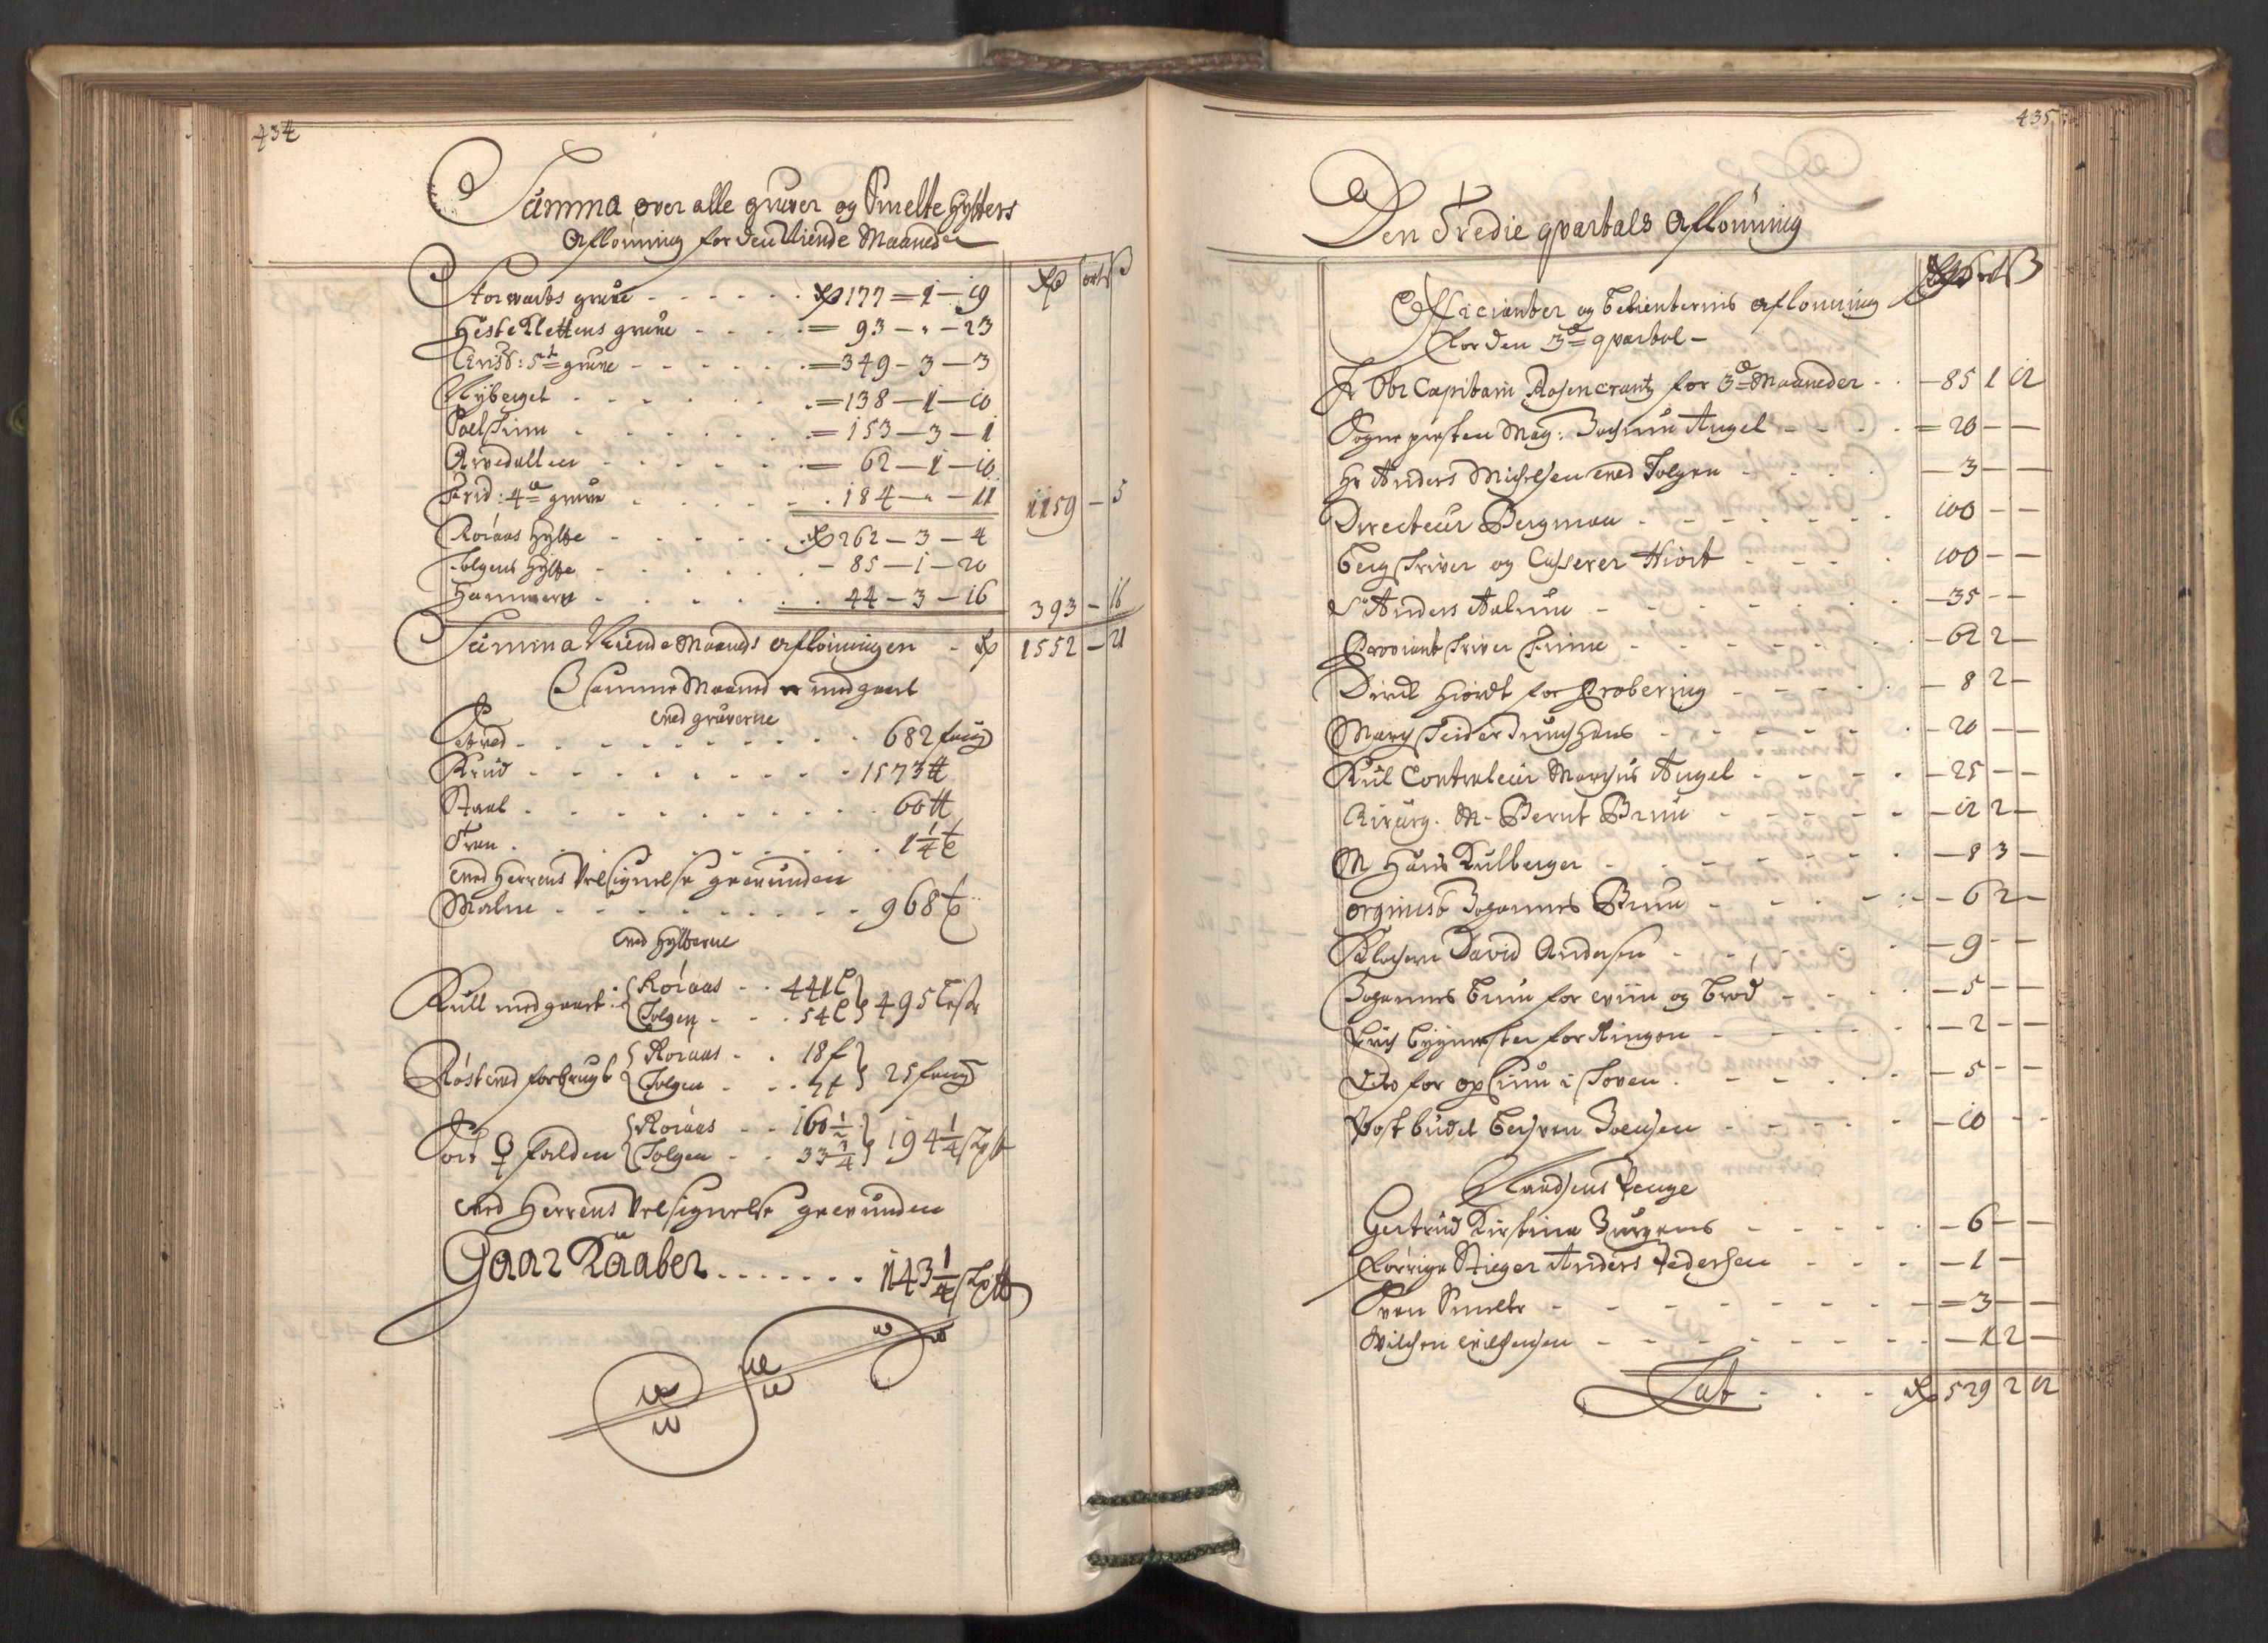 434
Summa over alle gruver og Smelte Hytters
Aflönning for den Niende Maaneder
Rd ort ß
Storwarts grube - - - - - - Rd 177 = 1 - 19
Hestekletttens grube - - - - = 93 - " - 23
Christ: 5t grube - - - - - = 349 - 3 - 3
Nyberget - - - - - - = 138 - 1 - 10
- - - - - - = 153 - 3 - 1
Arvedallen - - - - - = 62 - 1 - 10
Frid: 4de grube - - - - - 184 - " - 11 1159 - 5
Röraas Hytte - - - - - Rd 262 - 3 - 4
Tolgens Hytte - - - - - - 85 - 1 - 20
Hammeren - - - - - - 44 - 3 - 16 393 - 16
Summa Niende Maaneds aflönningen - Rd 1552 - 21
I samme Maaned er medgaaet
Med gruverne
Setved - - - - - - - - - 682 faufn
Krud - - - - - - - - - 1573 ℔
Staal - - - - - - - - - 60 ℔
Tran - - - - - - - - - 1 1/4 t
Med Herrens Velsignelse gevunden
Malm - - - - - - - - - 968 t
Ved Hytterne
Kull medgaaet: { Röraas - - 441 L
Tolgen - - - 54 L } 495 Lester
Röstved forbrugt { Röraas - - 18 f
Tolgen - - - 7 f } 25 faufn
Sort ♀ falden { Röraas - - 160 1/2
Tolgen - - 33 3/4 } 194 1/4 Sk℔
Med Herrens Velsignelse gevunden
Gaar Kaaber - - - - - - - 143 1/4 Sk℔
435
Den Tredie qvartals Aflönning
Rd ort ß
Officianter og betienternis aflönning
for den 3de qvartal -
Hr Obr Capitain Rosencrantz for 3de Maaneder - - 85 1 12
Sogne presten Mag: Jochum Angel - - - - = 20 - -
Hr Anders Michelsen ved Tolgen - - - - 3 - -
Directeur Bergman - - - - - - - 100 - -
Bergskriver og Casserer Hiort - - - - 100 - -
Sr Anders Aalrum - - - - - - - 35 - -
Proviantskriver Finne - - - - - - 62 2 -
Dirich Hiordt for Probering - - - - - 8 2 -
Marchscheider Junghans - - - - - - 20 - -
Kul Controleur Marchus Angel - - - - 25 - -
Chirurg. M. Bernt Bruun - - - - - 12 2 -
M Hans Kulberger - - - - - - - 8 3 -
Orginist Johannes Bruun - - - - - 6 2 -
Klocheren David Andersen - - - - - 9 - -
Johannes Bruun for viin og Bröd - - - - 5 - -
Erich Bygmester for Ringen - - - - - 2 - -
Dito for opsiun i skoven - - - - - - 5 - -
Postbudet Torsten Joensen - - - - - 10 - -
Naadsens Penge
Gertrud Kirstina Jürgens - - - - - 6 - -
Forrige Stiger Anders Pedersen - - - - 1 -
Sven Smelter - - - - - - - - = 3 - -
Wilchen Wilchensen - - - - - - - - 1 2 -
Lat - - - Rd 529 2 12